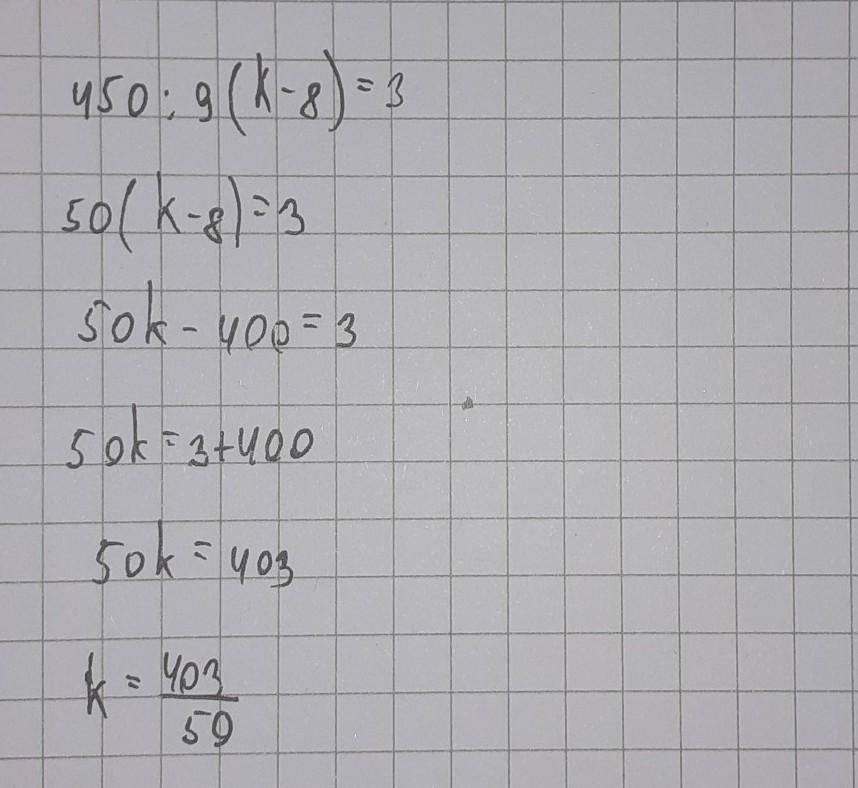 450:9(k-8)=3
50(k-8)=3
50k-400=3
50k=3+400
50k=403
k=403/50